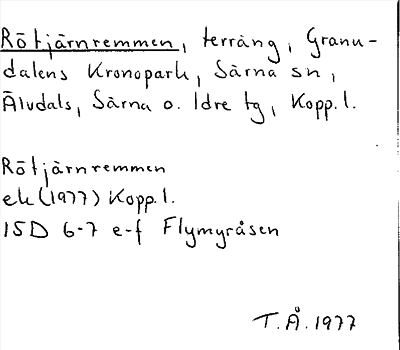 Rötjärnremmen, terräng, Granu-
dalens Kronopark, Särna sn,
Älvdals, Särna o. Idre tg, Kopp. l.
Rötjärnremmen
ek (1977) Kopp. l.
15D 6-7 e-f Flymyråsen
T. Å. 1977